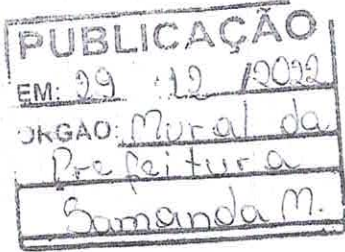 PUBLICAÇÃO
EM: 29 12 /2022
ORGAO: Mural da
Prefeitura
Samanda M.